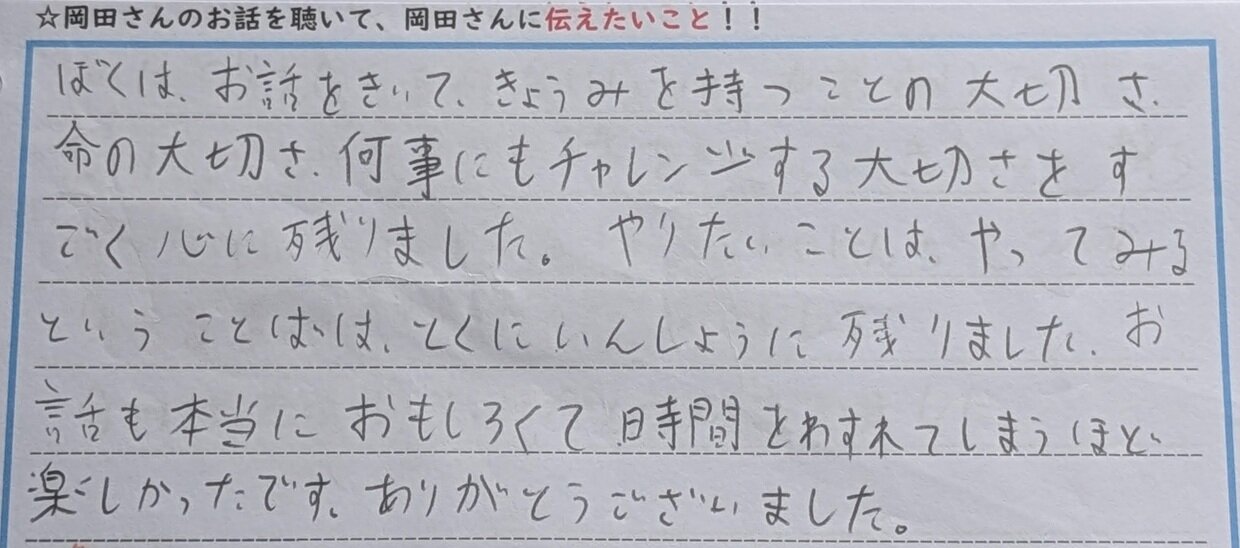 ☆岡田さんのお話を聴いて、岡田さんに伝えたいこと！！
ぼくは、お話をきいて、きょうみを持つことの大切さ、
命の大切さ、何事にもチャレンジする大切さをす
ごく心に残りました。やりたいことは、やってみる
ということばは、とくにいんしょうに残りました、お
話も本当におもしろくて時間をわすれてしまうほど
楽しかったです、ありがとうございました。